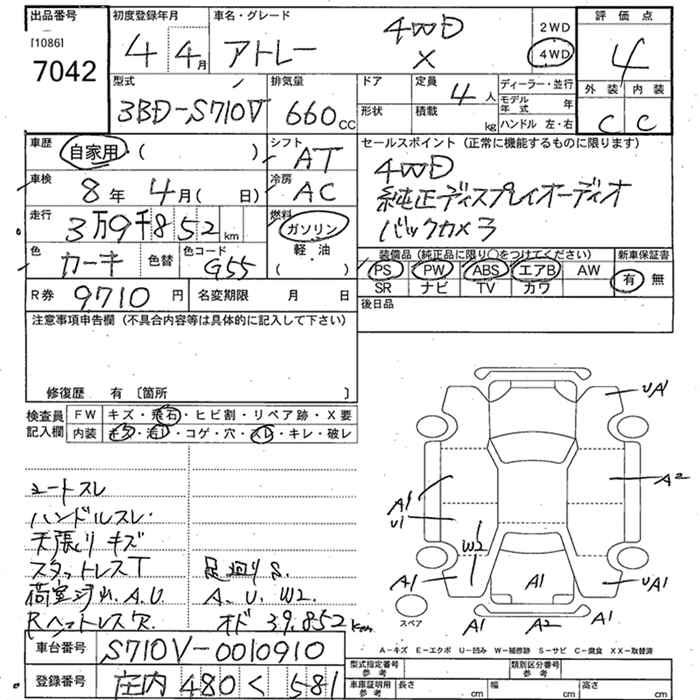 出品番号 初度登録年月 車名・グレード 4WD 2WD 評価点
[1086] 4 4月 アトレー X 4WD 4
7042 外装 内装
型式 排気量 ドア 定員 4人 ディーラー・並行 C C
3BD-S710V 660cc 形状 積載 kg モデル年式 年
ハンドル 左・右
車歴 自家用 ( ) シフト AT セールスポイント (正常に機能するものに限ります)
車検 8年 4月( 日) 冷房 AC 4WD
走行 3万9千852km 燃料 ガソリン 純正ディスプレイオーディオ
軽・油 バックカメラ
色 カーキ 色替 色コード G55 ( ) 装備品 (純正品に限り○をつけてください) 新車保証書
PS PW ABS エアB AW 有 無
R券 9710円 名変期限 月 日 SR ナビ TV カワ
注意事項申告欄 (不具合内容等は具体的に記入して下さい) 後日品
修復歴 有 [箇所 ]
検査員 FW キズ・飛石・ヒビ割・リペア跡・X要
記入欄 内装 キズ・汚レ・コゲ・穴・スレ・キレ・破レ
UA1
A2
A1
U1
W2
A1 A1 UA1
スペア A1 A2 A1
シートスレ
ハンドルスレ.
天張リキズ
スタットレスT 足廻りS.
荷室汚れ.A.U. A、U、W2.
Rヘットレス欠 オド 39.852km
車台番号 S710V-0010910 A-キズ E-エクボ U-凹み W-補修跡 S-サビ C-腐食 XX-取替済
登録番号 庄内 480 く 581 型式指定番号 参考 類別区分番号 参考
車庫証明用 参考 長さ cm 幅 cm 高さ cm